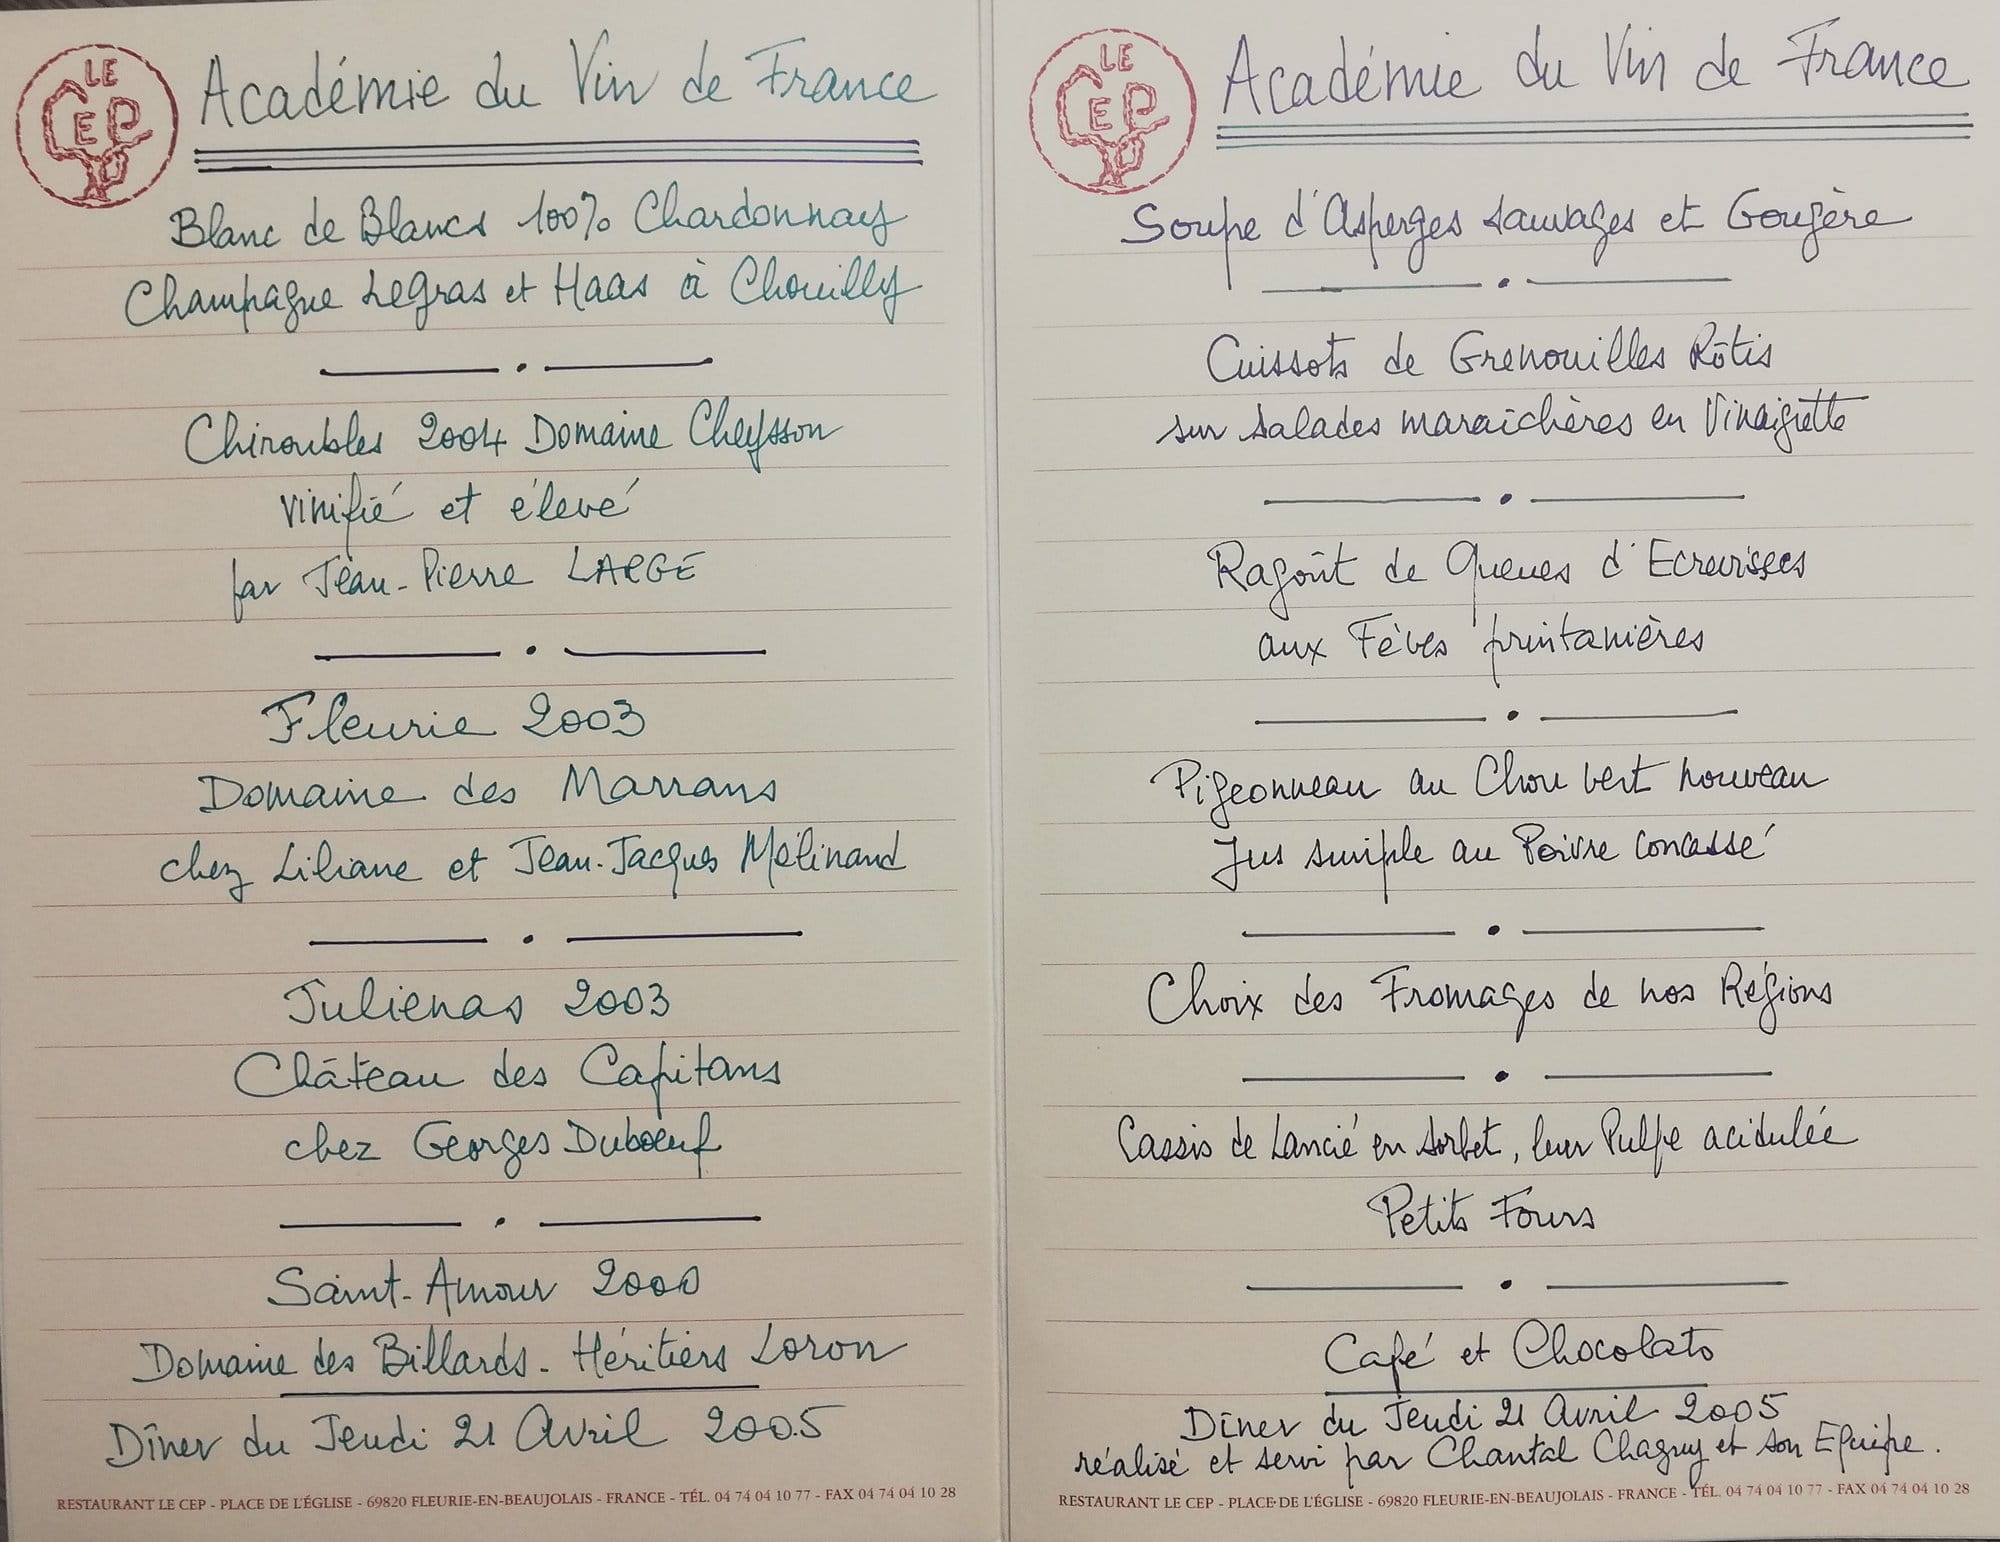 LE
CEP
Académie du Vin de France
Blanc de Blancs 100% Chardonnay
Champagne Legras et Haas à Chouilly
Chiroubles 2004 Domaine Cheysson
vinifié et élevé
par Jean-Pierre LARGE
Fleurie 2003
Domaine des Marrans
chez Liliane et Jean-Jacques Mélinand
Julienas 2003
Château des Capitans
chez Georges Dubœuf
Saint-Amour 2000
Domaine des Billards - Héritiers Loron
Dîner du Jeudi 21 Avril 2005
RESTAURANT LE CEP - PLACE DE L'ÉGLISE - 69820 FLEURIE-EN-BEAUJOLAIS - FRANCE - TÉL. 04 74 04 10 77 - FAX 04 74 04 10 28
LE
CEP
Académie du Vin de France
Soupe d'Asperges sauvages et Gougère
Cuissots de Grenouilles Rôtis
sur salades maraîchères en Vinaigrette
Ragoût de Queues d'Ecrevisses
aux Fèves printanières
Pigeonneau au Chou vert nouveau
Jus simple au Poivre concassé
Choix des Fromages de nos Régions
Cassis de Lancié en sorbet, leur Pulpe acidulée
Petits Fours
Café et Chocolats
Dîner du Jeudi 21 Avril 2005
réalisé et servi par Chantal Chagny et son Equipe.
RESTAURANT LE CEP - PLACE DE L'ÉGLISE - 69820 FLEURIE-EN-BEAUJOLAIS - FRANCE - TÉL. 04 74 04 10 77 - FAX 04 74 04 10 28